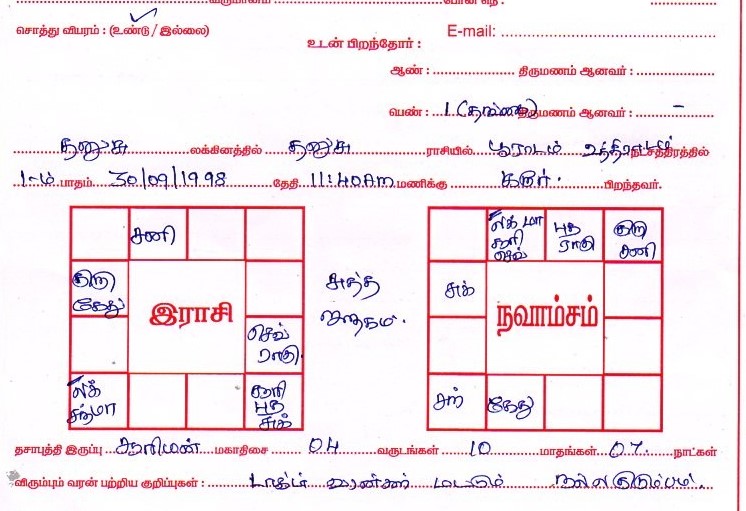 சொத்து விபரம் : (உண்டு / இல்லை)
உடன் பிறந்தோர் :
E-mail:
ஆண் : திருமணம் ஆனவர் :
பெண் : 1 (தங்கை) திருமணம் ஆனவர் : -
தனுசு லக்கினத்தில் தனுசு ராசியில் பூராடம் உத்திராடம் நட்சத்திரத்தில்
1-ம் பாதம் 30/09/1998 தேதி 11:40Am மணிக்கு கரூர். பிறந்தவர்.
சனி
குரு
கேது
இராசி
செவ்
ராகு
லக்
சந்மா
சூரி
புத
சுக்
சுத்த
ஜாதகம்.
லக் மா
சூரி
செவ்
புத
ராகு
குரு
சனி
சுக்
நவாம்சம்
சந்
கேது
தசாபுத்தி இருப்பு மகாதிசை 04 வருடங்கள் 10 மாதங்கள் 07 நாட்கள்
விரும்பும் வரன் பற்றிய குறிப்புகள் : மட்டும் நல்ல குடும்பம்.